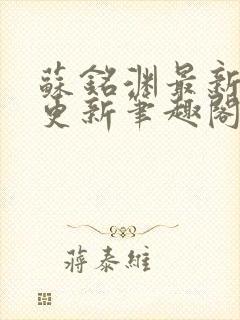 蘇銘淵最新
更新筆趣閣
蔣泰維